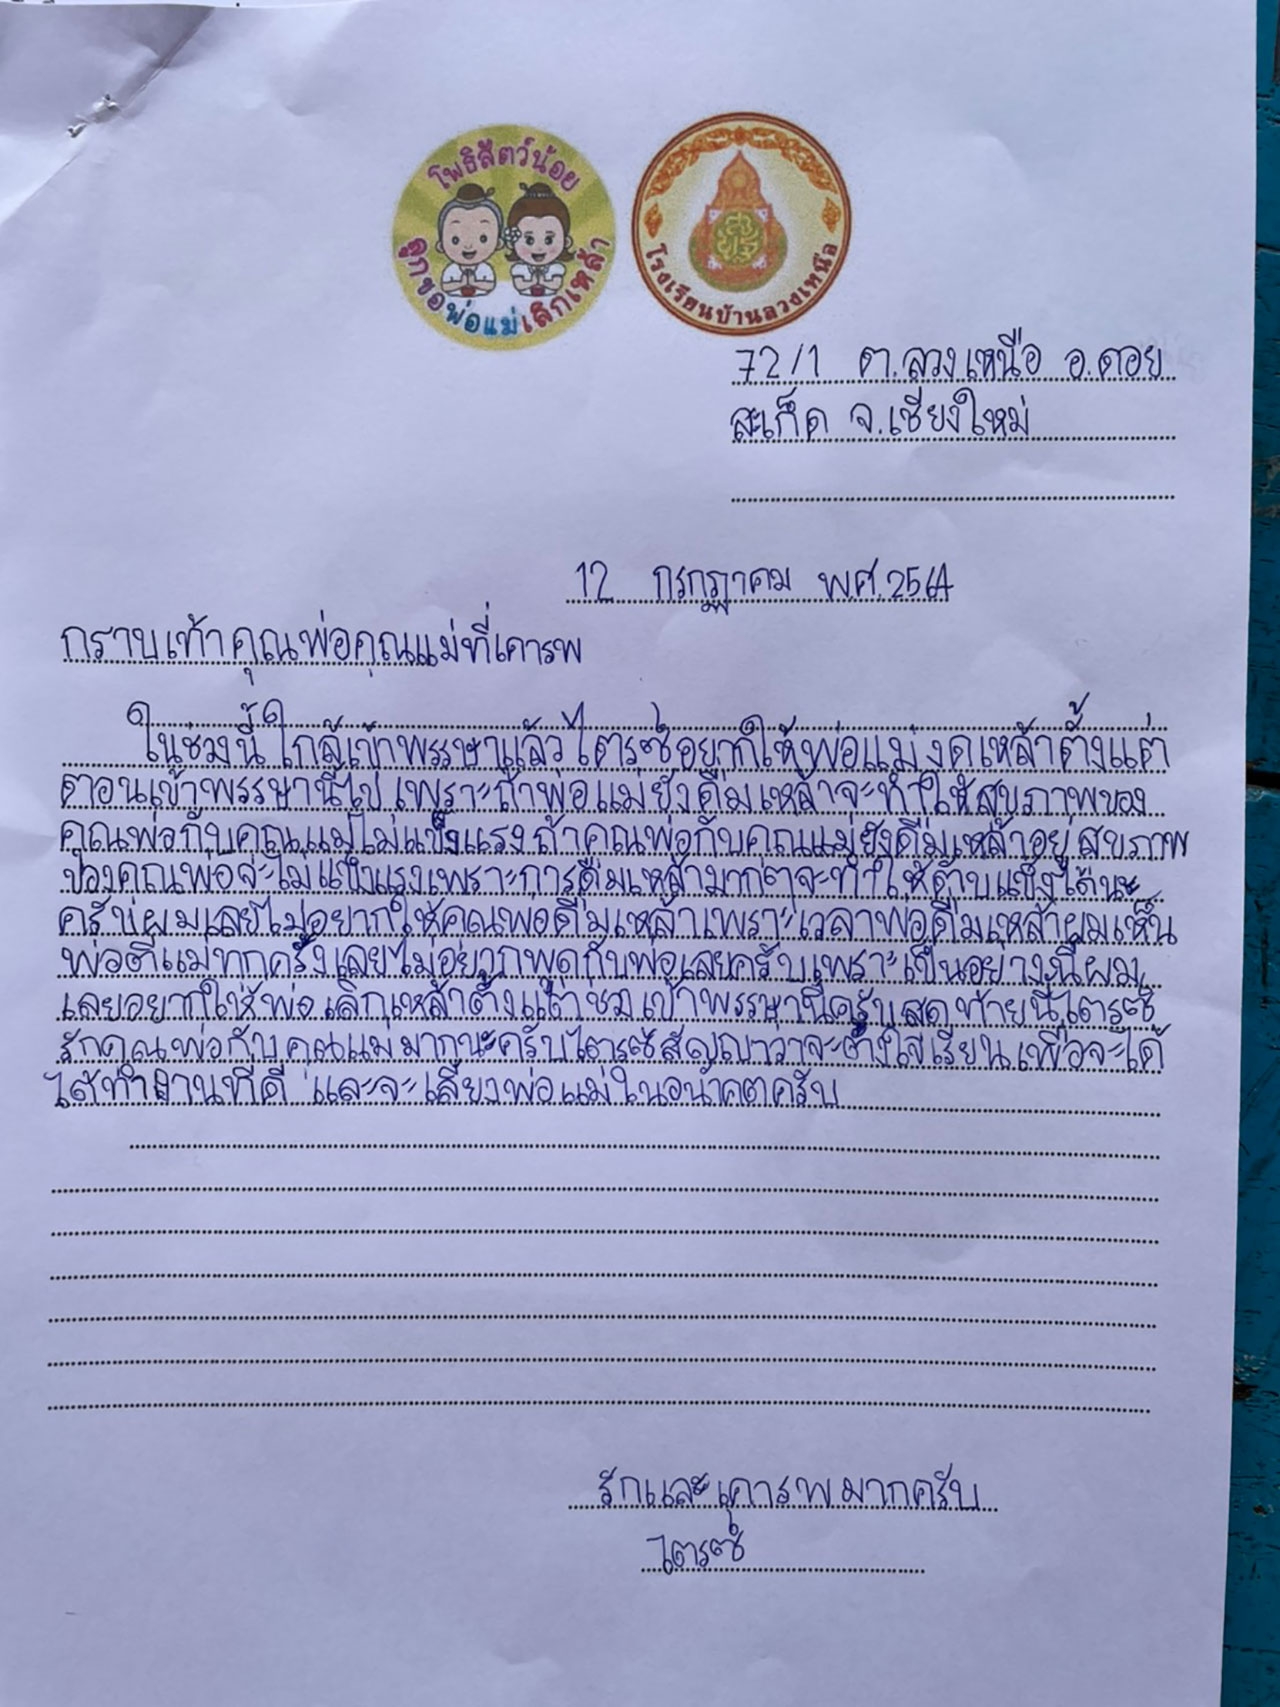 โพธิสัตว์น้อย
ลูกขอพ่อแม่เลิกเหล้า
โรงเรียนบ้านลวงเหนือ
72/1 ต.ลวงเหนือ อ.ดอย
สะเก็ด จ.เชียงใหม่
12 กรกฎาคม พ.ศ.2564
กราบเท้าคุณพ่อคุณแม่ที่เคารพ
ในช่วงนี้ใกล้เข้าพรรษาแล้วไตรซ์อยากให้พ่อแม่งดเหล้าตั้งแต่
ตอนเข้าพรรษานี้ไป เพราะถ้าพ่อแม่ยังดื่มเหล้าจะทำให้สุขภาพของ
คุณพ่อกับคุณแม่ไม่แข็งแรงถ้าคุณพ่อกับคุณแม่ยังดื่มเหล้าอยู่สุขภาพ
ของคุณพ่อจะไม่แข็งแรงเพราะการดื่มเหล้ามากๆจะทำให้ตับแข็งได้นะ
ครับผมเลยไม่อยากให้คุณพ่อดื่มเหล้าเพราะเวลาพ่อดื่มเหล้าผมเห็น
พ่อตีแม่ทุกครั้งเลยไม่อยากพูดกับพ่อเลยครับเพราะเป็นอย่างนี้ผม
เลยอยากให้พ่อเลิกเหล้าตั้งแต่ช่วงเข้าพรรษานี้ครับสุดท้ายนี้ไตรซ์
รักคุณพ่อกับคุณแม่มากนะครับไตรซ์สัญญาว่าจะตั้งใจเรียนเพื่อจะได้
ได้ทำงานที่ดี และจะเลี้ยงพ่อแม่ในอนาคตครับ
รักและเคารพมากครับ
ไตรซ์